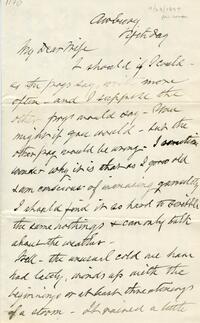 Amesbury
My Dear Wife
I should if I could -
as the frog say, more
often - and I suppose the
other frog would say - Thee
might if you would - but the
other frog would be wrong. I
wonder why it is that as I grow old
I am conscious of
I should find it so hard to
the same nothings & can only talk
about the weather -
Well - the unusual cold we have
had lately, winds up with the
beginnings or at least threatenings
of a storm - It rained a little